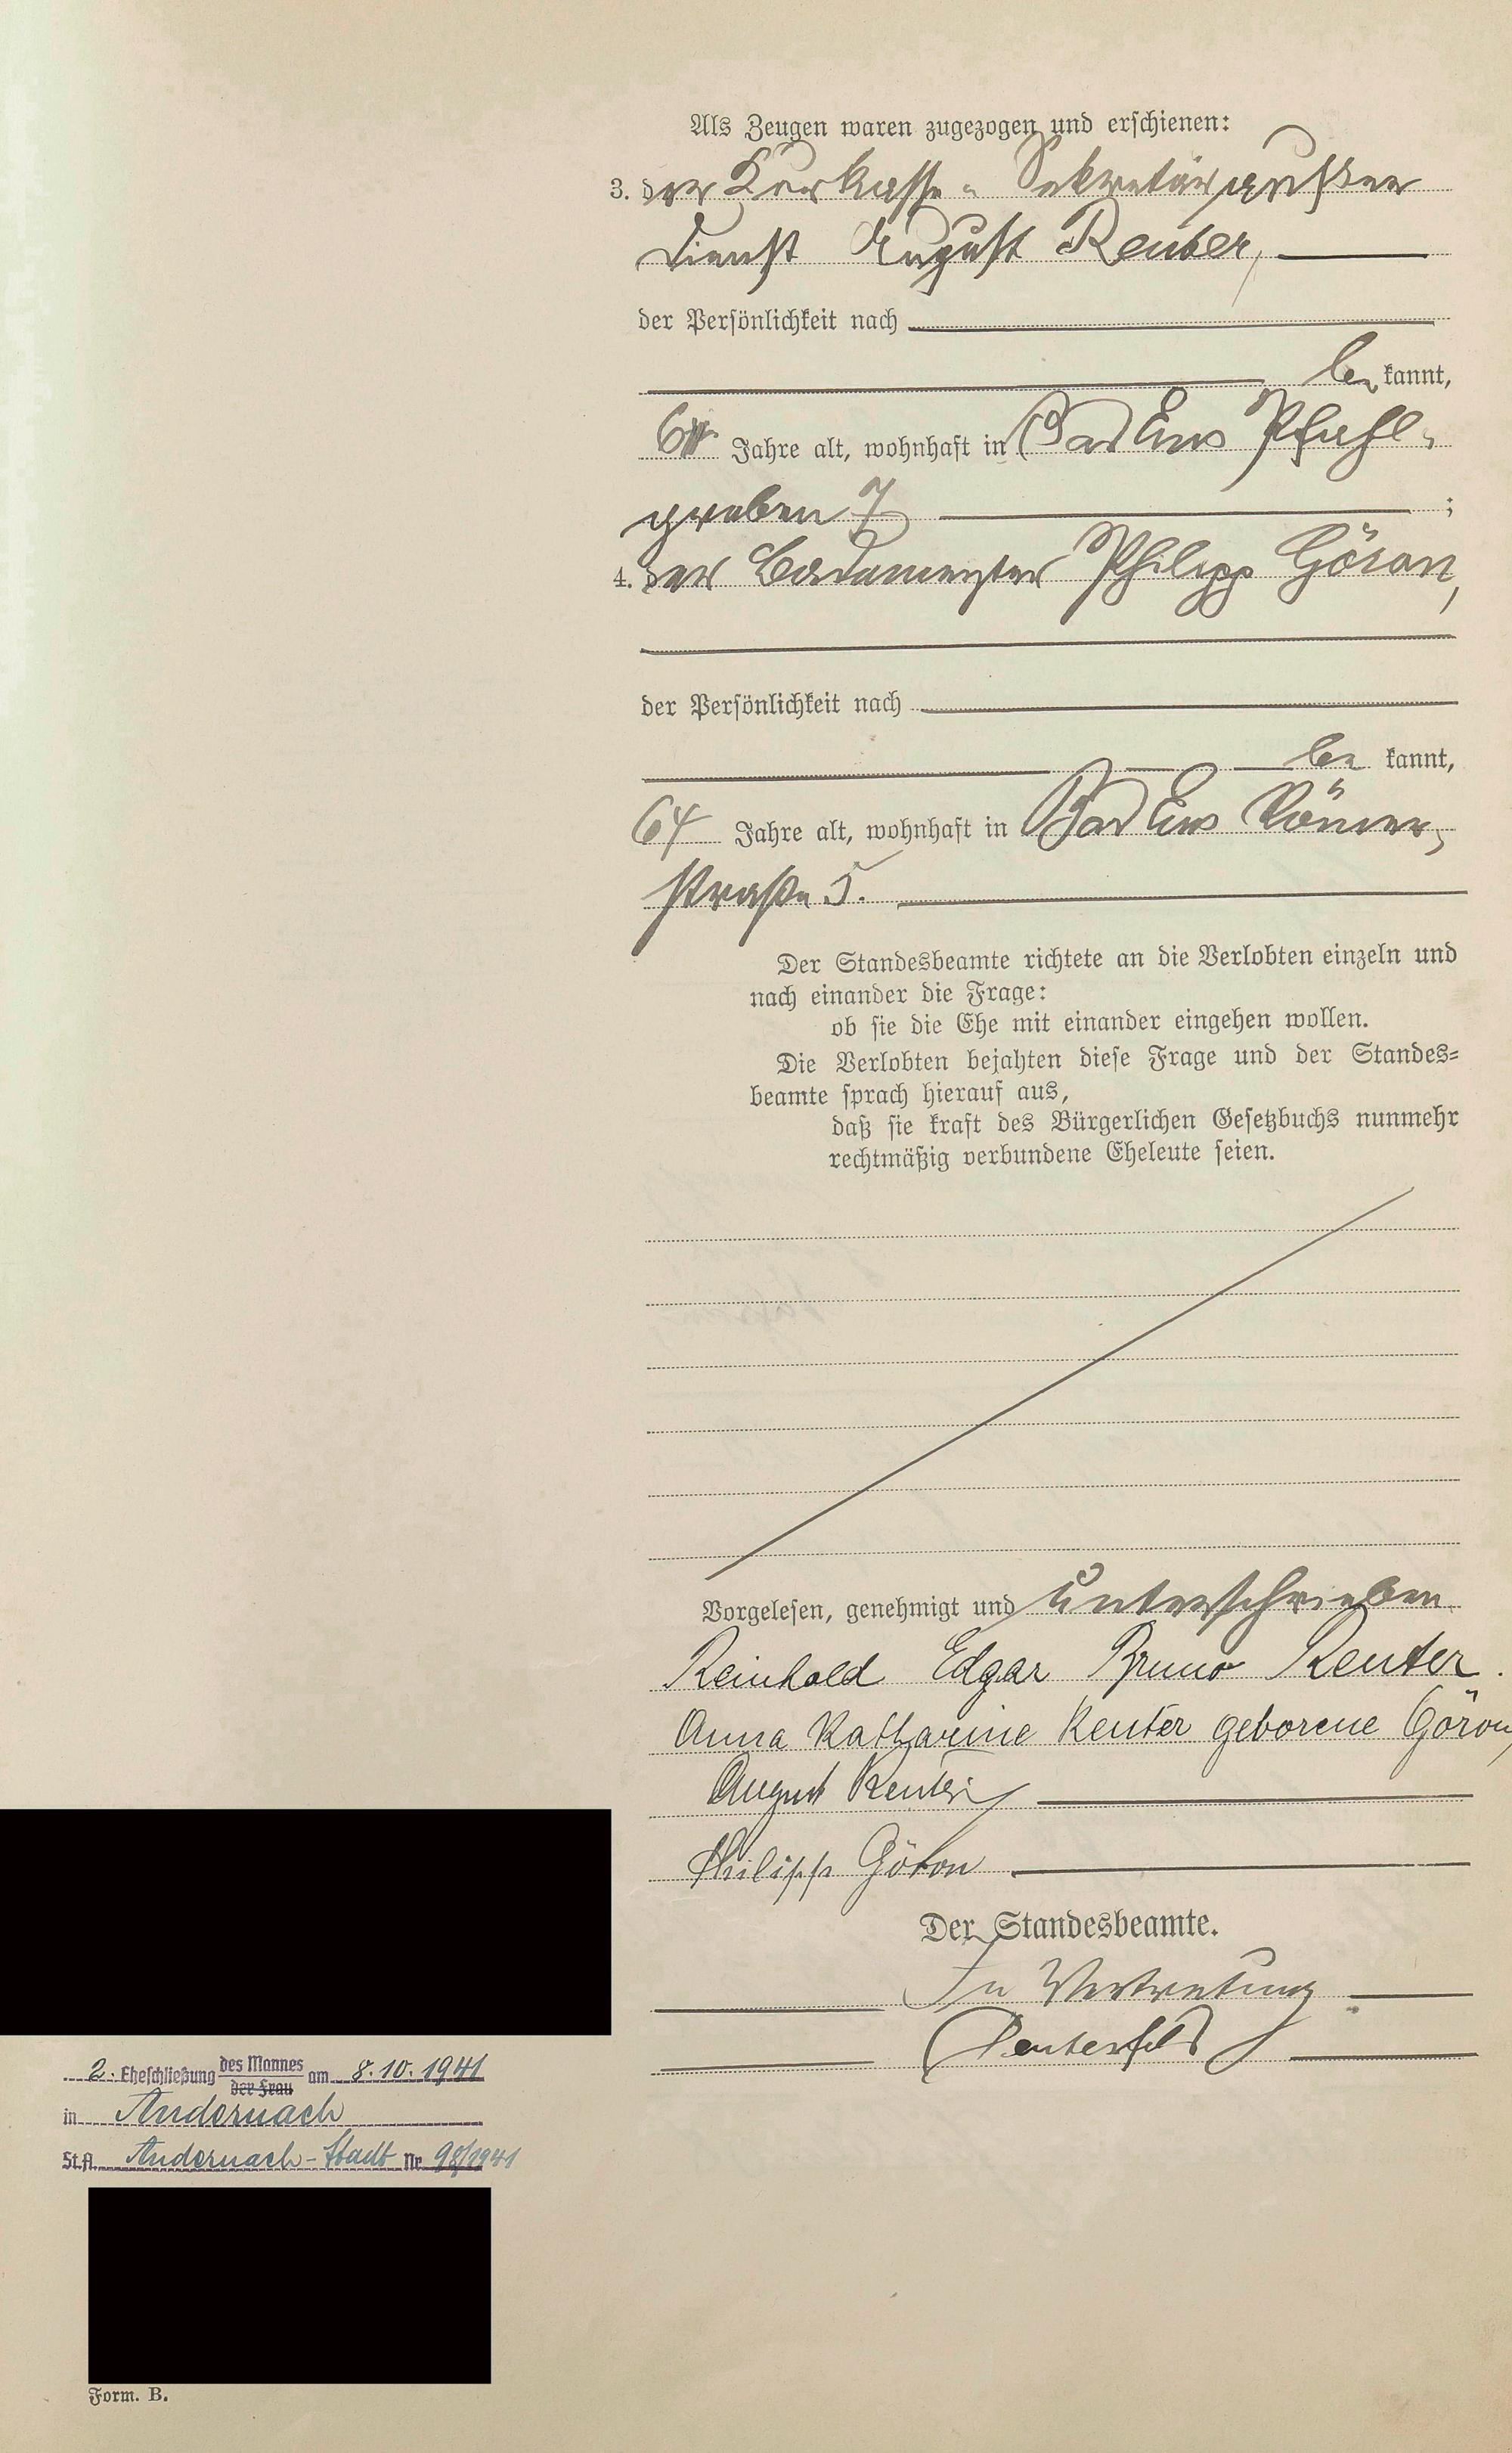 Als Zeugen waren zugezogen und erschienen:
3. der Kurkasse-Sekretär außer
Dienst August Reuter,
der Persönlichkeit nach
be kannt,
Jahre alt, wohnhaft in Bad Ems Pfahl-
graben 7 ;
4. der Bademeister Philipp Göron,
der Persönlichkeit nach
be kannt,
64 Jahre alt, wohnhaft in Bad Ems Römer-
straße 5.
Der Standesbeamte richtete an die Verlobten einzeln und
nach einander die Frage:
ob sie die Ehe mit einander eingehen wollen.
Die Verlobten bejahten diese Frage und der Standes-
beamte sprach hierauf aus,
daß sie kraft des Bürgerlichen Gesetzbuchs nunmehr
rechtmäßig verbundene Eheleute seien.
Vorgelesen, genehmigt und unterschrieben
Reinhold Edgar Bruno Reuter.
Anna Katharine Reuter geborene Göron,
August Reuter
Philipp Göron
Der Standesbeamte.
In Vertretung
2. Eheschließung des Mannes am 8.10.1941
der Frau
in Andernach
St.A. Andernach-Stadt Nr 98/1941
Form. B.